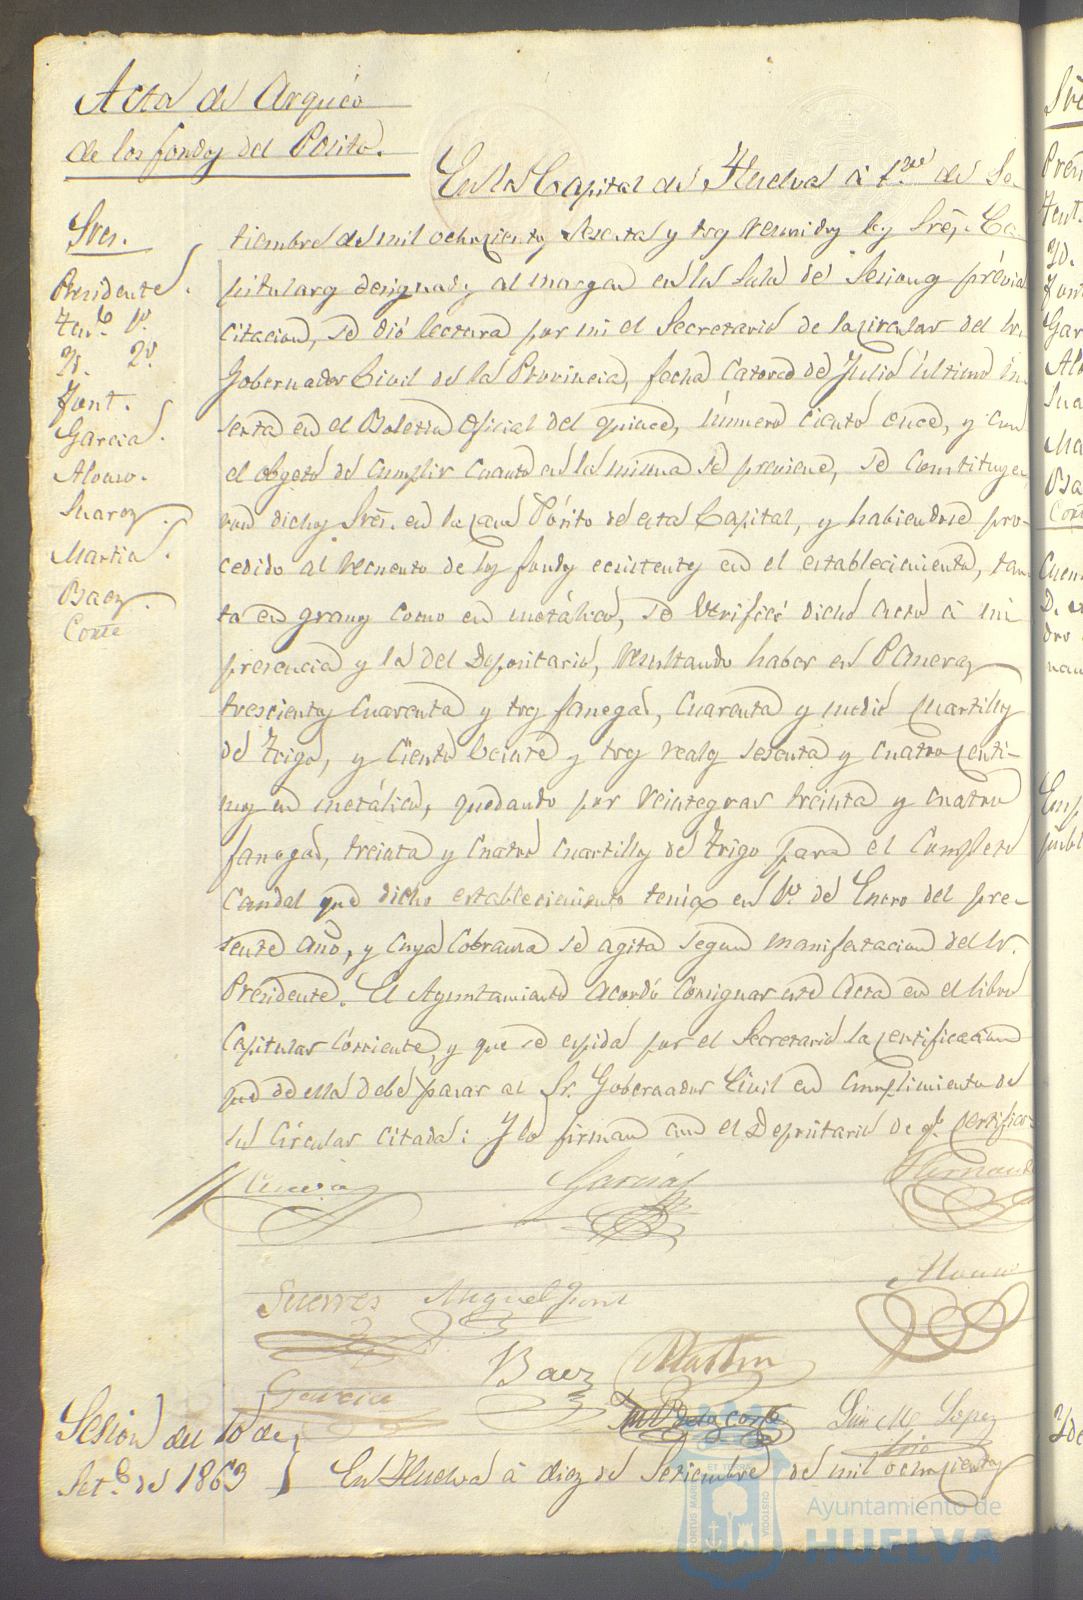 Acta de Arqueo
de los fondos del Pósito.
En la Capital de Huelva á 1.º de Se-
Sres.
Presidente.
Ten.te 1.º
Yd. 2.º
Font.
Garcia.
Alonso.
Suarez.
Martin.
Baez.
Corte
tiembre de mil ochocientos sesenta y tres reunidos los Sres. Ca-
pitulares designados al margen en la Sala de Sesiones prévia
citacion, se dió lectura por mi el Secretario de la circular del Sr.
Gobernador Civil de la Provincia, fecha catorce de Julio último in-
serta en el Boletin Oficial del quince, número ciento once, y con
el objeto de cumplir cuanto en la misma se previene, se constituye-
ron dichos Sres. en la casa Pósito de esta Capital, y habiendose pro-
cedido al recuento de los fondos ecsistentes en el establecimiento, tan-
to en granos como en metálico, se verificó dicho acto á mi
presencia y la del Depositario, resultando haber en Paneras
trescientas cuarenta y tres fanegas, cuarenta y medio cuartillos
de trigo, y ciento veinte y tres reales sesenta y cuatro centi-
mos en metálico, quedando por reintegrar treinta y cuatro
fanegas, treinta y cuatro cuartillos de trigo para el completo
caudal que dicho establecimiento tenia en 1.º de Enero del pre-
sente año, y cuya cobranza se agita segun manifestacion del Sr.
Presidente. El Ayuntamiento acordó consignar este Acta en el libro
Capitular corriente, y que se espida por el Secretario la certificacion
que de ella debe pasar al Sr. Gobernador Civil en cumplimiento de
su Circular citada: Y lo firman con el Depositario de q.e certifico.
Garcia
Hernand
Suarez Miguel Font
Alonso
Baez Martin
Garcia
de la Corte Luis M. Lopez
Srio
Sesion del 10 de
Set.e de 1863
En Huelva á diez de Setiembre de mil ochocientos
PORTUS MARIS ET TERRE CUSTODIA
Ayuntamiento de
HUELVA
Sre
Presi
Tent.
Yd.
Font
Gar
Alo
Sua
Ma
Bae
Cort
Cuen
D.
dro
nan
Emp
publ
Yde